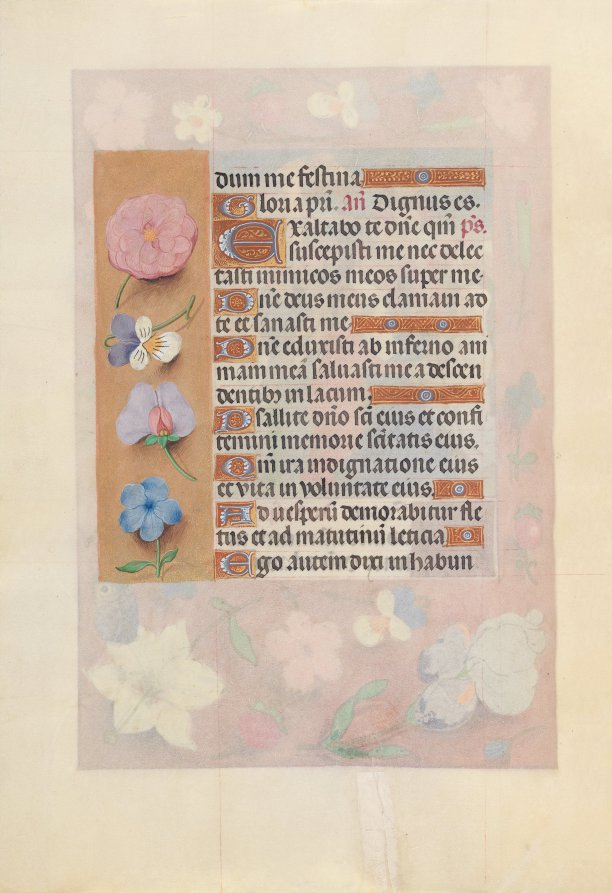 dum me festina
Gloria pr̄i. an̄ Dignus es.
Exaltabo te dn̄e qm̄ ps.
suscepisti me nec delec
tasti inimicos meos super me.
Dn̄e deus meus clamaui ad
te et sanasti me
Dn̄e eduxisti ab inferno ani
mam meā saluasti me a descen
dentibꝫ in lacum.
Psallite dn̄o sc̄i eius et confi
temini memorie sc̄itatis eius.
Qm̄ ira indignatione eius
et vita in voluntate eius.
Ad uesperū demorabitur fle
tus et ad matutinū leticia
Ego autem dixi in habun